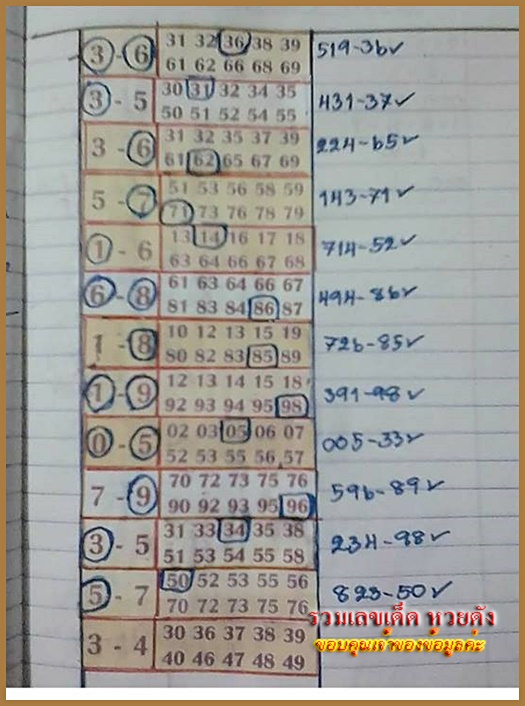 3 - 6
31 32 36 38 39
61 62 66 68 69
519-36✓
3 - 5
30 31 32 34 35
50 51 52 54 55
431-37✓
3 - 6
31 32 35 37 39
61 62 65 67 69
224-65✓
5 - 7
51 53 56 58 59
71 73 76 78 79
143-71✓
1 - 6
13 14 16 17 18
63 64 66 67 68
714-52✓
6 - 8
61 63 64 66 67
81 83 84 86 87
494-86✓
1 - 8
10 12 13 15 19
80 82 83 85 89
726-85✓
1 - 9
12 13 14 15 18
92 93 94 95 98
391-98✓
0 - 5
02 03 05 06 07
52 53 55 56 57
005-33✓
7 - 9
70 72 73 75 76
90 92 93 95 96
596-89✓
3 - 5
31 33 34 35 38
51 53 54 55 58
234-98✓
5 - 7
50 52 53 55 56
70 72 73 75 76
823-50✓
3 - 4
30 36 37 38 39
40 46 47 48 49
รวมเลขเด็ด หวยดัง
ขอบคุณเจ้าของข้อมูลค่ะ